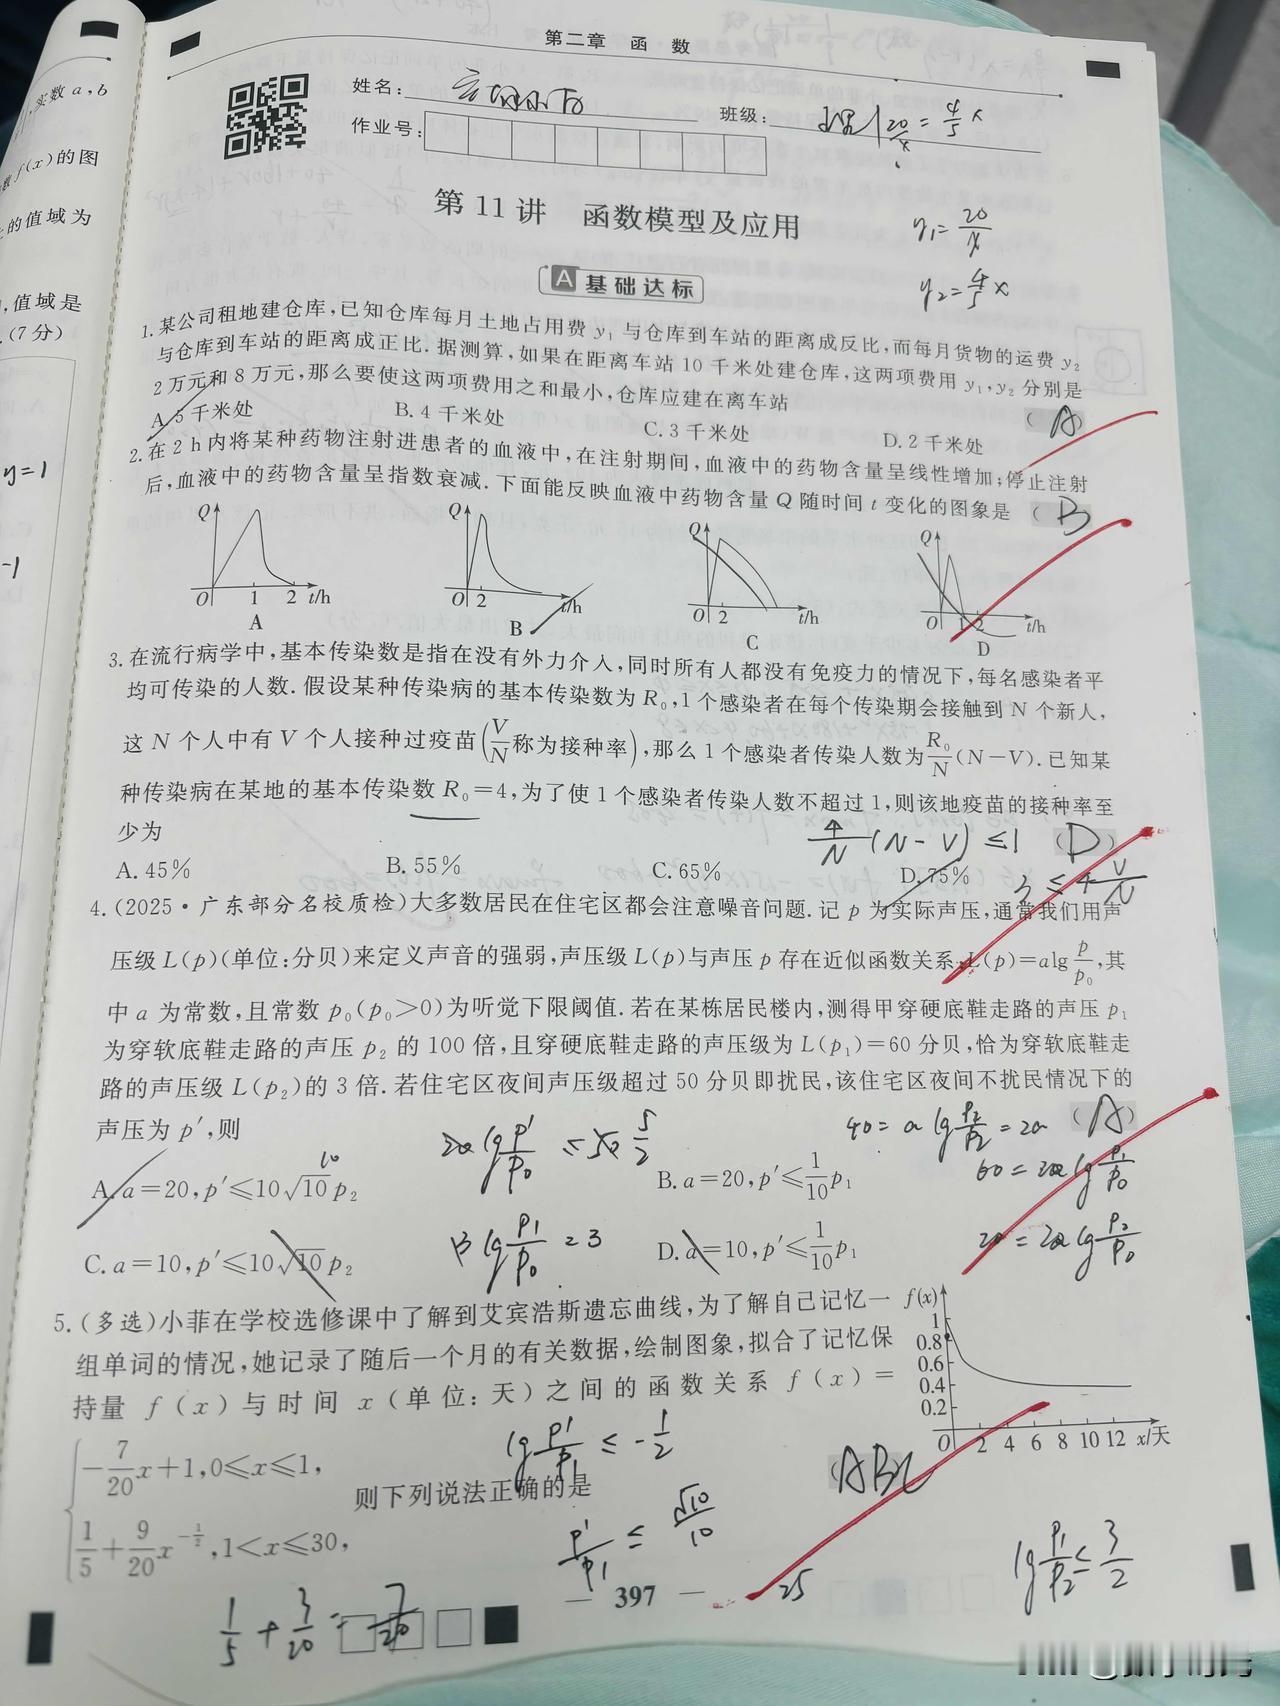 第二章 函 数
实数 a,b
数 f(x)的图
上的值域为
,值域是
.(7分)
y=1
-1
姓名:
班级:
作业号:
20/x = 4/5 x
第 11 讲 函数模型及应用
y₁=20/x
y₂=4/5 x
A 基础达标
1.某公司租地建仓库,已知仓库每月土地占用费 y₁ 与仓库到车站的距离成反比,而每月货物的运费 y₂
与仓库到车站的距离成正比.据测算,如果在距离车站 10 千米处建仓库,这两项费用 y₁,y₂ 分别是
2 万元和 8 万元,那么要使这两项费用之和最小,仓库应建在离车站 (A)
A.5 千米处 B.4 千米处 C.3 千米处 D.2 千米处
2.在 2 h 内将某种药物注射进患者的血液中,在注射期间,血液中的药物含量呈线性增加;停止注射
后,血液中的药物含量呈指数衰减.下面能反映血液中药物含量 Q 随时间 t 变化的图象是 (B
Q O 1 2 t/h A
Q O 2 t/h B
Q O 2 t/h C
Q O 1 2 t/h D
3.在流行病学中,基本传染数是指在没有外力介入,同时所有人都没有免疫力的情况下,每名感染者平
均可传染的人数.假设某种传染病的基本传染数为 R₀,1 个感染者在每个传染期会接触到 N 个新人,
这 N 个人中有 V 个人接种过疫苗(V/N称为接种率),那么 1 个感染者传染人数为R₀/N(N−V).已知某
种传染病在某地的基本传染数 R₀=4,为了使 1 个感染者传染人数不超过 1,则该地疫苗的接种率至
少为 4/N (N-V) ≤1 (D)
A.45% B.55% C.65% D.75%
3 ≤ 4 V/N
4.(2025·广东部分名校质检)大多数居民在住宅区都会注意噪音问题.记 p 为实际声压,通常我们用声
压级 L(p)(单位:分贝)来定义声音的强弱,声压级 L(p)与声压 p 存在近似函数关系:L(p)=alg p/p₀,其
中 a 为常数,且常数 p₀(p₀>0)为听觉下限阈值.若在某栋居民楼内,测得甲穿硬底鞋走路的声压 p₁
为穿软底鞋走路的声压 p₂ 的 100 倍,且穿硬底鞋走路的声压级为 L(p₁)=60 分贝,恰为穿软底鞋走
路的声压级 L(p₂)的 3 倍.若住宅区夜间声压级超过 50 分贝即扰民,该住宅区夜间不扰民情况下的
声压为 p′,则 (A)
40= a lg p₁/p₂ =2a
lg p'/p₀ ≤ 5/2
60 = 20 lg p₁/p₀
A.a=20,p′≤10√10 p₂ B.a=20,p′≤1/10 p₁
10
lg p₁/p₀ = 3
20 = 20 lg p₂/p₀
C.a=10,p′≤10√10 p₂ D.a=10,p′≤1/10 p₁
5.(多选)小菲在学校选修课中了解到艾宾浩斯遗忘曲线,为了解自己记忆一
组单词的情况,她记录了随后一个月的有关数据,绘制图象,拟合了记忆保
持量 f(x)与时间 x(单位:天)之间的函数关系 f(x)=
f(x) 1 0.8 0.6 0.4 0.2 O 2 4 6 8 10 12 x/天
lg p'/p₁ ≤ -1/2
{−7/20 x+1,0≤x≤1,
1/5+9/20 x^(−1/2),1<x≤30,
则下列说法正确的是 (ABC
p'/p₁ ≤ √10/10
lg p₁/p₂ ≤ 3/2
1/5 + 3/20 = 7/20
— 397 —
25